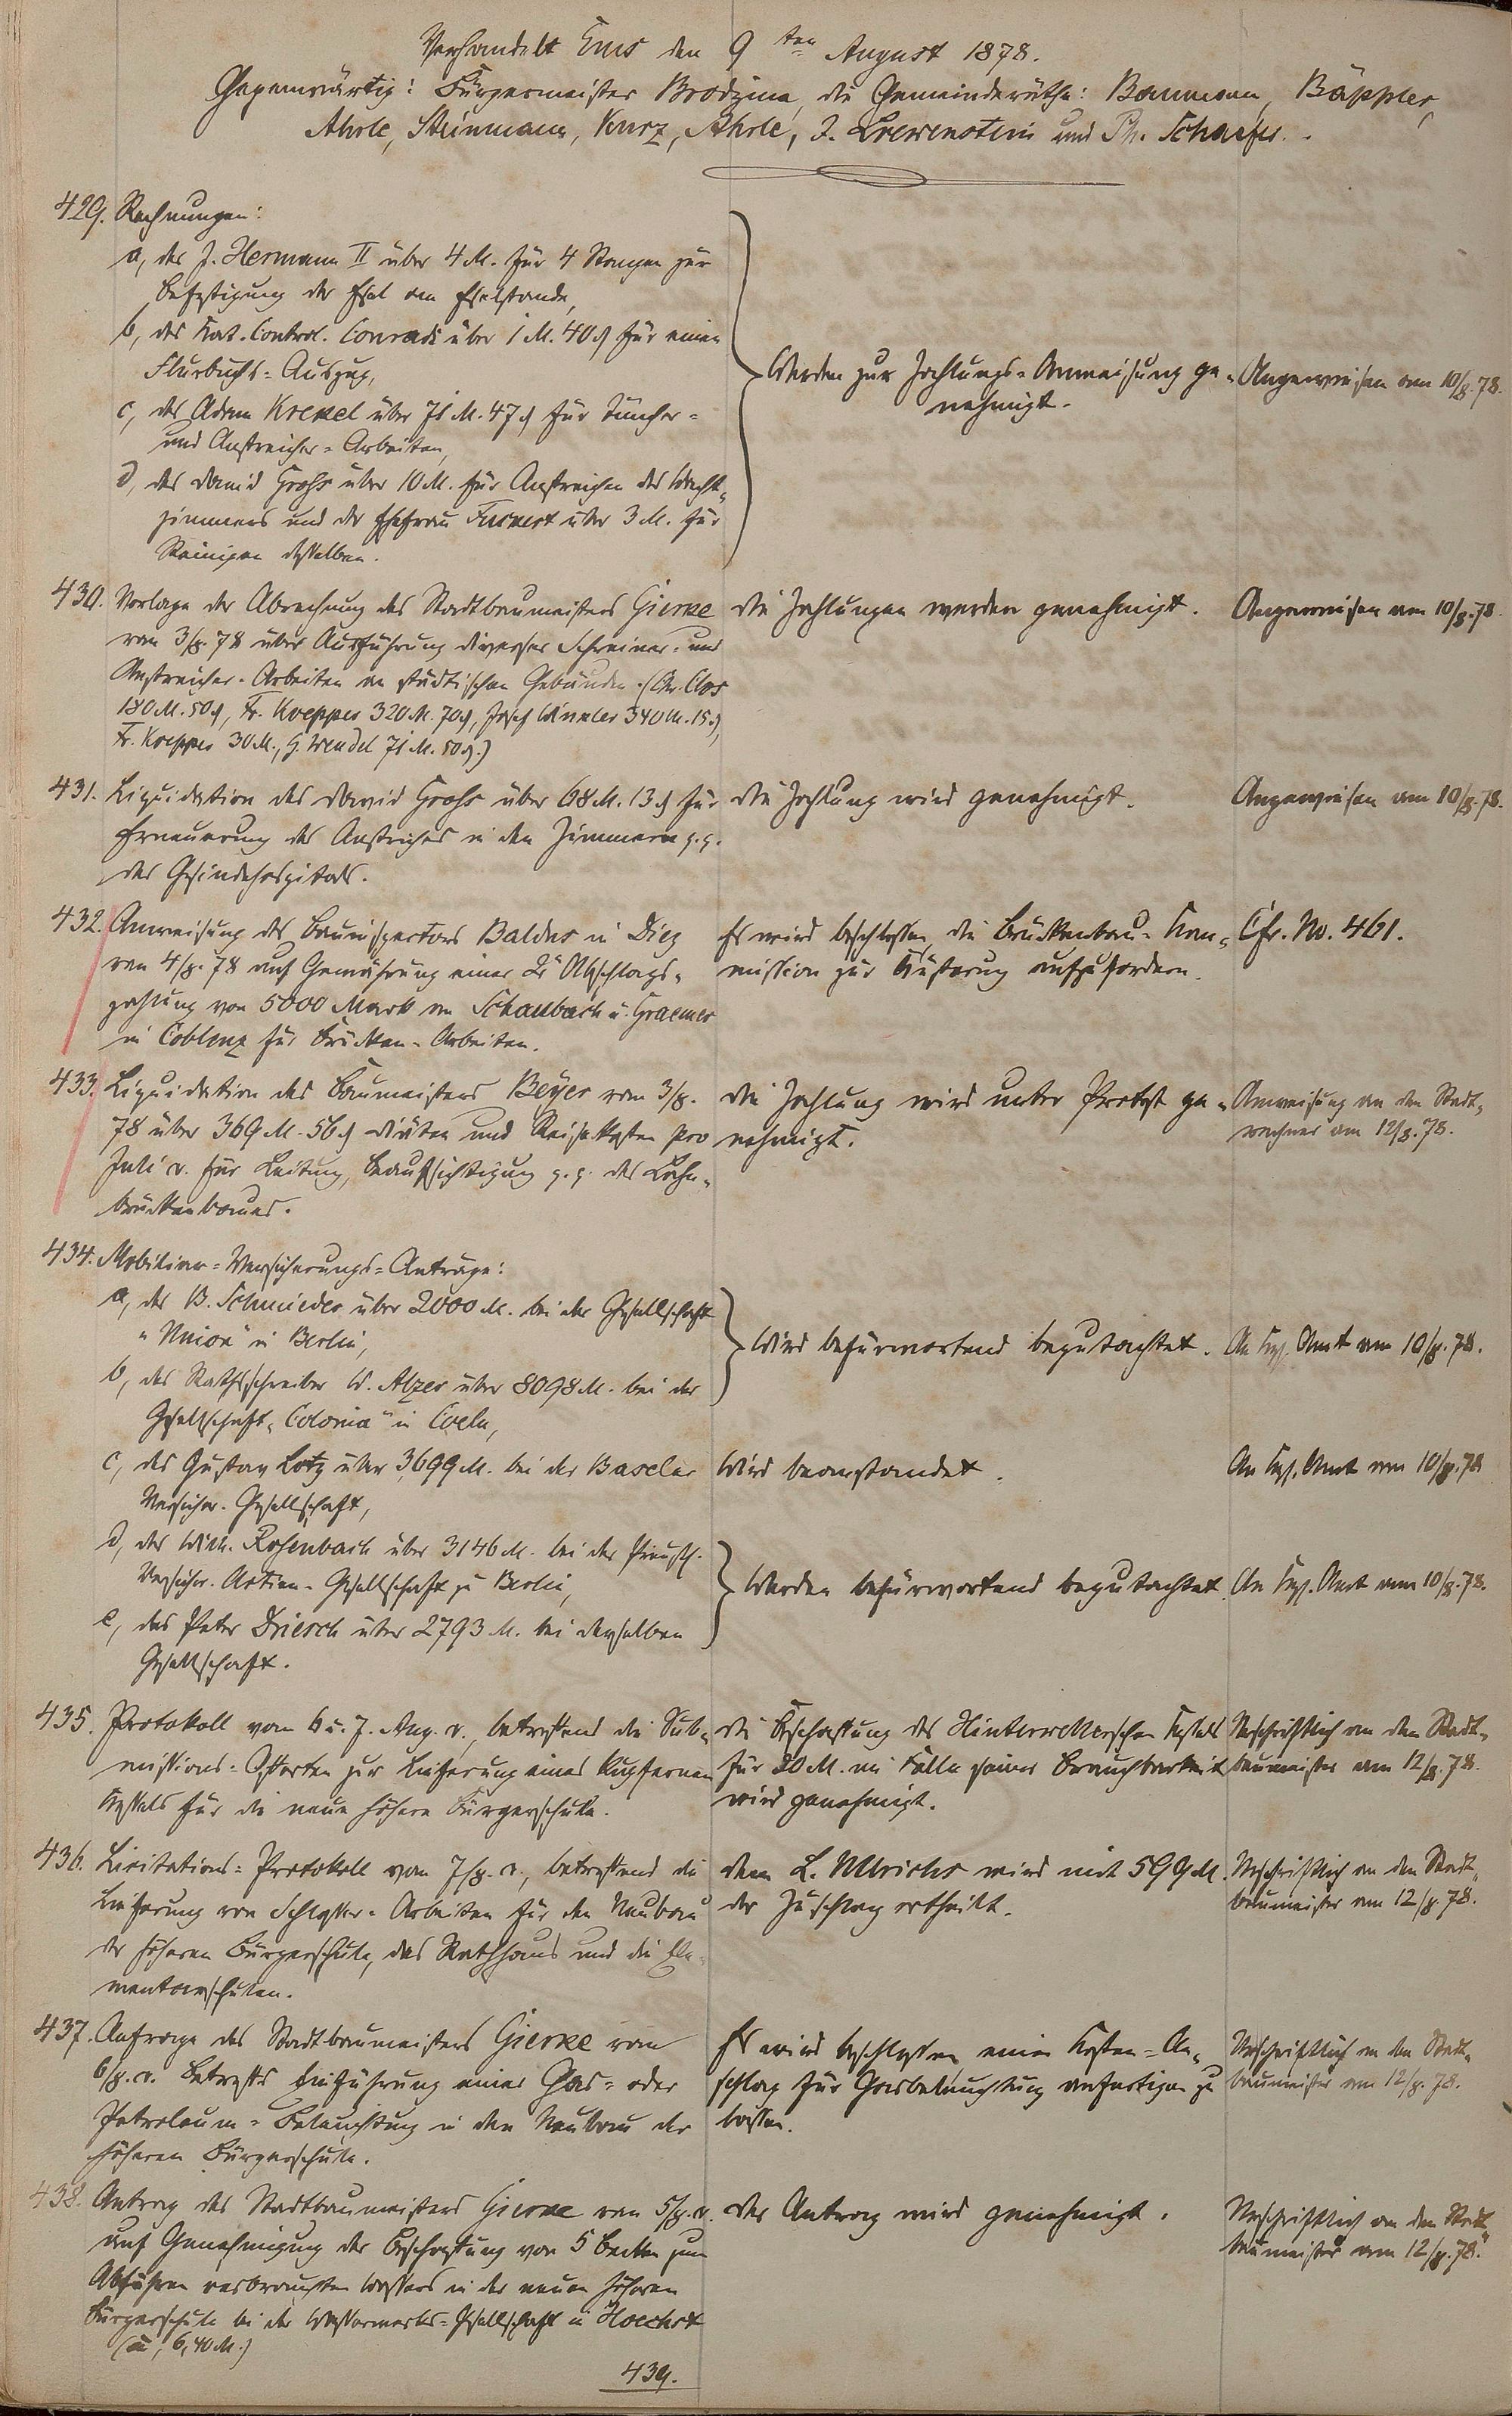 Verhandelt Ems den 9ten August 1878.
Gegenwärtig: Bürgermeister Brodzina, die Gemeinderäthe: Baumann, Bäppler,
Ahrle, Steinmann, Kurz, Ahrle, J. Loewenstein und Ph. Schaefer.
429. Rechnungen:
a, des J. Hermann II über 4 M. für 4 Stangen zur
Befestigung der Esel am Eselstande,
b, des Kat. Control. Conradi über 1 M. 40 ₰ für einen
Flurbuchs-Auszug,
c, des Adam Krekel über 71 M. 47 ₰ für Tüncher-
und Anstreicher-Arbeiten,
d, des David Grohs über 10 M. für Anstreichen des Wacht-
zimmers und der Ehefrau über 3 M. für
Reinigen desselben.
Werden zur Zahlungs-Anweisung ge-
nehmigt.
Angewiesen am 10/8.78.
430. Vorlage der Abrechnung des Stadtbaumeisters Gierke
vom 3/8.78 über Ausführung diverser Schreiner- und
Anstreicher-Arbeiten an städtischen Gebäuden. (Chr. Clos
180 M. 50 ₰, Fr. Koepper 320 M. 70 ₰, Josef Winkler 340 M. 15 ₰,
Fr. Koepper 30 M., G. Wendel 71 M. 50 ₰.)
Die Zahlungen werden genehmigt.
Angewiesen am 10/8.78.
431. Liquidation des David Grohs über 68 M. 13 ₰ für
Erneuerung des Anstriches in den Zimmern p.p.
des Gesindehospitals.
Die Zahlung wird genehmigt.
Angewiesen am 10/8.78.
432. Anweisung des Bauinspectors Baldus in Diez
vom 4/8.78 auf Gewährung einer 2n Abschlags-
zahlung von 5000 Mark an Schaubach u. Graemer
in Coblenz für Brücken-Arbeiten.
Es wird beschlossen, die Brückenbau-Kom-
mission zur Äußerung aufzufordern.
Cfr. No. 461.
433. Liquidation des Baumeisters Beyer vom 3/8.
78 über 369 M. 56 ₰ Diäten und Reisekosten pro
Juli c. für Leitung, Beaufsichtigung p.p. des Lahn-
brückenbaues.
Die Zahlung wird unter Protest ge-
nehmigt.
Anweisung an den Stadt-
rechner am 12/8.78.
434. Mobiliar-Versicherungs-Anträge:
a, des B. Schmieder über 2000 M. bei der Gesellschaft
"Union" in Berlin,
b, des Rathsschreiber W. Alzer über 8098 M. bei der
Gesellschaft "Colonia" in Coeln,
Wird befürwortend begutachtet.
An Kgl. Amt am 10/8.78.
c, des Gustav Lotz über 3699 M. bei der Baseler
Versicher. Gesellschaft,
Wird beanstandet.
An Kgl. Amt am 10/8.78
d, des Wilh. Rosenbach über 3146 M. bei der Preuß.
Versicher. Actien-Gesellschaft zu Berlin,
e, des Peter Driesch über 2793 M. bei derselben
Gesellschaft.
Werden befürwortend begutachtet.
An Kgl. Amt am 10/8.78.
435. Protokoll vom 6 u. 7. Aug. c., betreffend die Sub-
missions-Offerten zur Lieferung eines kupfernen
Kessels für die neue höhere Bürgerschule.
Die Beschaffung des Kessels
für 20 M. im Falle seiner Brauchbarkeit
wird genehmigt.
Urschriftlich an den Stadt-
baumeister am 12/8.78.
436. Licitations-Protokoll vom 7/8. c., betreffend die
Lieferung von Schlosser-Arbeiten für den Neubau
der höheren Bürgerschule, das Rathhaus und die Ele-
mentarschulen.
Dem L. Ullrichs wird mit 599 M.
der Zuschlag ertheilt.
Urschriftlich an den Stadt-
baumeister am 12/8.78.
437. Anfrage des Stadtbaumeisters Gierke vom
6/8. c. betreffs Einführung einer Gas- oder
Petroleum-Beleuchtung in den Neubau der
höheren Bürgerschule.
Es wird beschlossen, einen Kosten-An-
schlag für Gasbeleuchtung anfertigen zu
lassen.
Urschriftlich an den Stadt-
baumeister am 12/8.78.
438. Antrag des Stadtbaumeisters Gierke vom 5/8. c.
auf Genehmigung der Beschaffung von 5 Becken zum
Abführen verbrauchten Wassers in der neuen höheren
Bürgerschule bei der Wasserwerks-Gesellschaft in Hoechst
(à 6,40 M.)
Der Antrag wird genehmigt.
Urschriftlich an den Stadt-
baumeister am 12/8.78.
439.